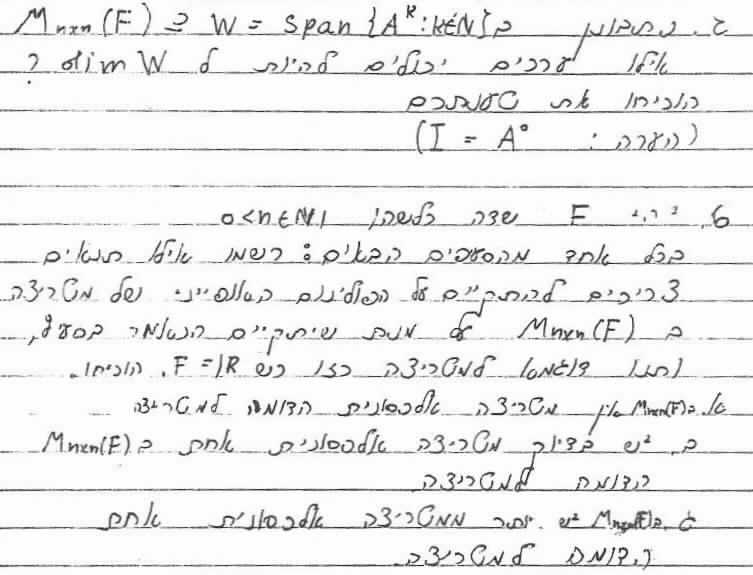 ג. התבונן ב M_{nxn}(F) ⊇ W = span {A^k : k∈N}
אילו ערכים יכולים להיות ל dim W ?
הוכיחו את טענתכם
(הערה : I = A°)
6. יהי F שדה כלשהו ו 0<n∈N
בכל אחד מהסעיפים הבאים: רשמו אילו תנאים
צריכים להתקיים על הפולינום האופייני של מטריצה
ב M_{nxn}(F) על מנת שיתקיים הנאמר בסעיף,
ותנו דוגמא למטריצה כזו כש F=IR. הוכיחו.
א. ב M_{nxn}(F) אין מטריצה אלכסונית הדומה למטריצה
ב. יש בדיוק מטריצה אלכסונית אחת ב M_{nxn}(F)
הדומה למטריצה
ג. ב M_{nxn}(F) יש יותר ממטריצה אלכסונית אחת
הדומה למטריצה.